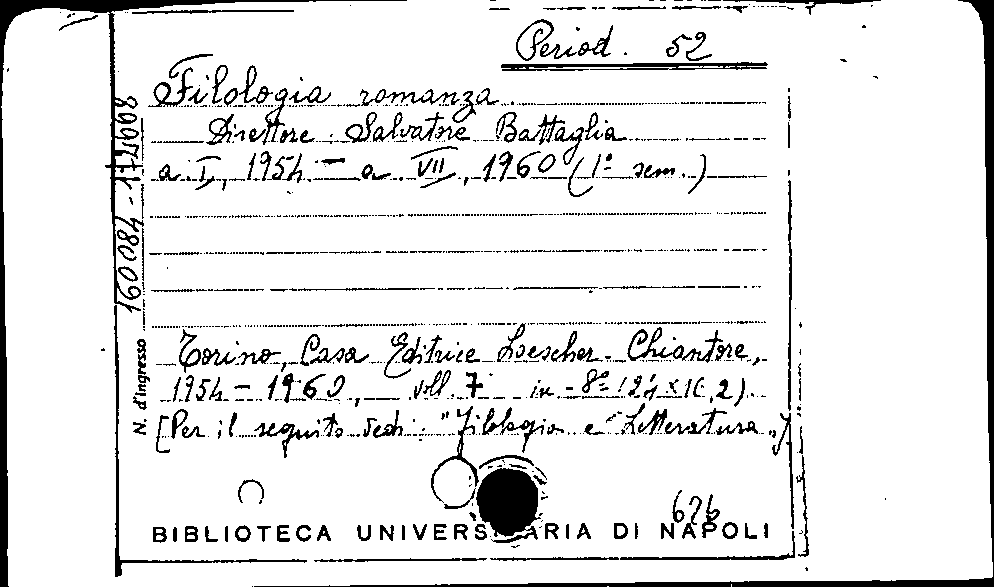 Period. 52
Filologia romanza.
Direttore: Salvatore Battaglia
a. I, 1954 - a. VII, 1960 (1° sem.)
N. d'ingresso 160084-172008
Torino, Casa Editrice Loescher-Chiantore,
1954 - 1960, voll. 7 in-8° (24 x 16,2).
[Per il seguito vedi: "Filologia e Letteratura"]
676
BIBLIOTECA UNIVERSITARIA DI NAPOLI